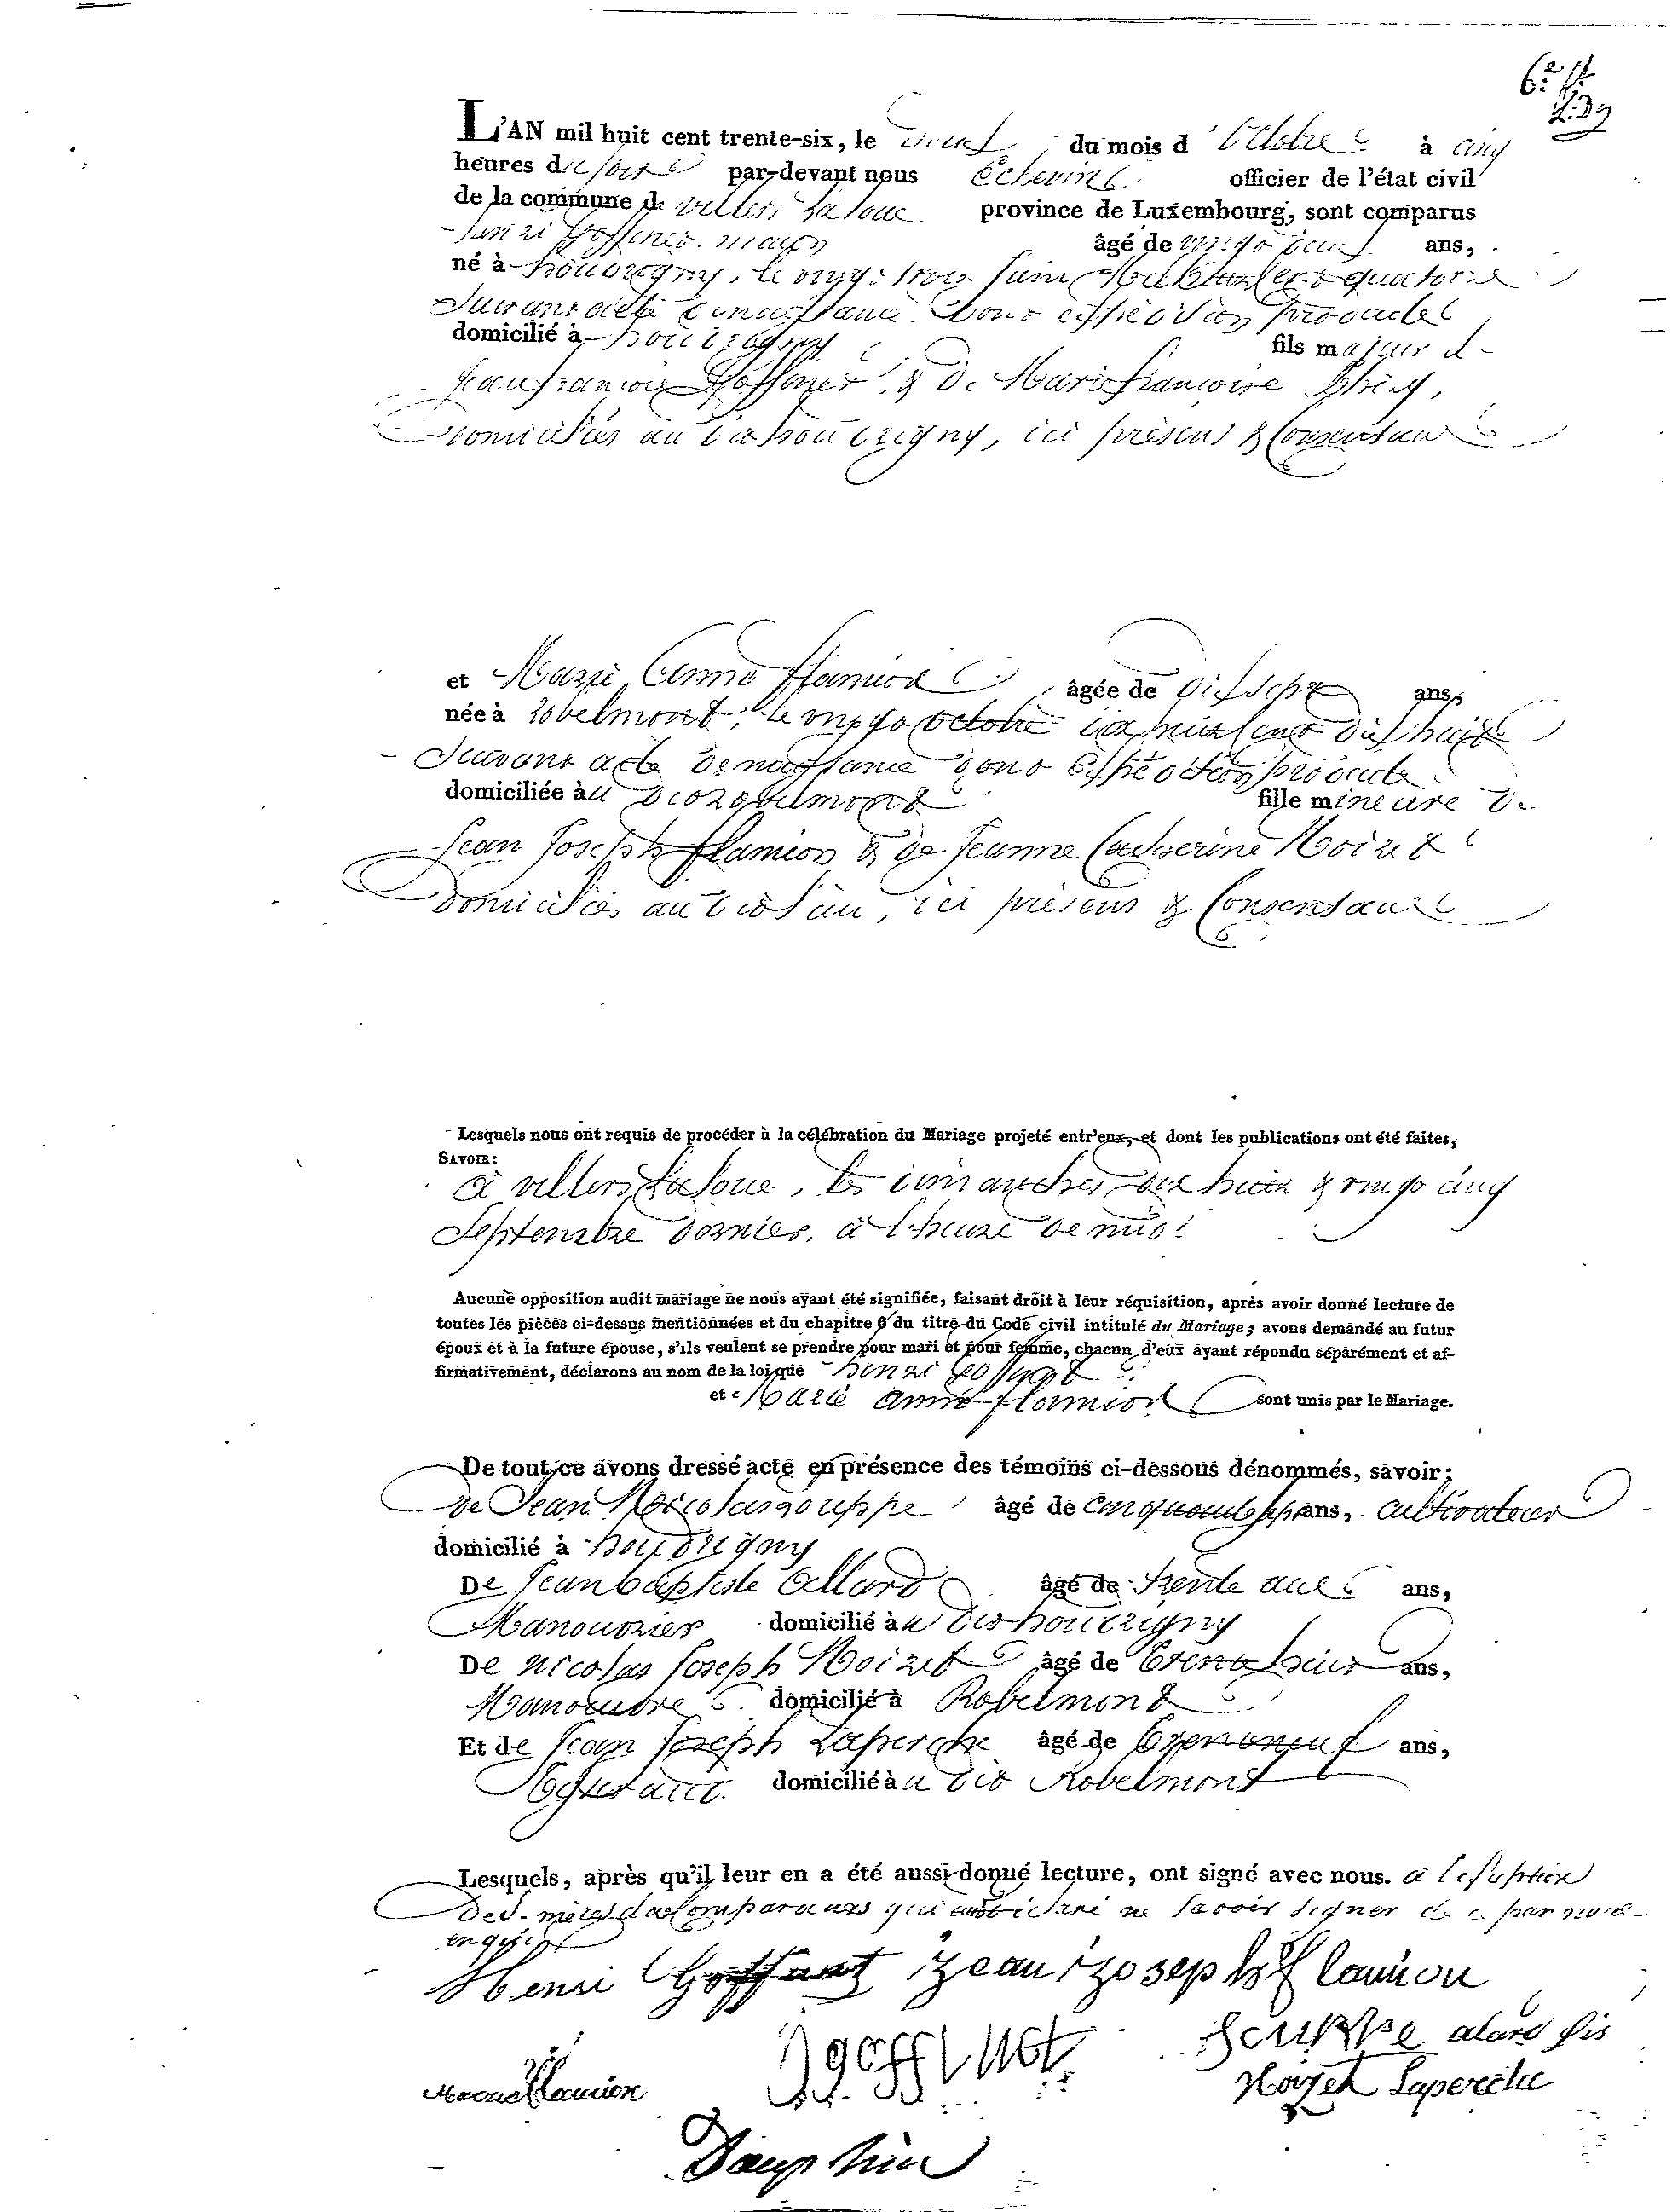 L'AN mil huit cent trente-six, le neuf du mois d'Octobre à cinq
heures du soir par-devant nous Echevin officier de l'état civil
de la commune de villers La loue province de Luxembourg, sont comparus
henri Goffinet âgé de vingt deux ans,
né à houdrigny, le vingt trois Juin Mil huit cent quatorze
Suivant acte de naissance dont expédition produite
domicilié à houdrigny fils majeur d
Jean françois Goffinet & De Marie françoise
domiciliés au dit houdrigny, ici présens & Consentans
et Marie Anne flamion âgée de dix sept ans,
née à robelmont, le vingt octobre mil huit Cent Dix huit
Suivant acte De naissance dont Expédition produite
domiciliée au dit robelmont fille mineure De
Jean Joseph flamion & de Jeanne Catherine Noizet
domiciliés au dit lieu, ici présens & Consentans
Lesquels nous ont requis de procéder à la célébration du Mariage projeté entr'eux, et dont les publications ont été faites,
SAVOIR:
à villers La loue, les dimanches dix huit & vingt cinq
Septembre dernier, à l'heure de midi
Aucune opposition audit mariage ne nous ayant été signifiée, faisant droit à leur réquisition, après avoir donné lecture de
toutes les pièces ci-dessus mentionnées et du chapitre 6 du titre du Code civil intitulé du Mariage; avons demandé au futur
époux et à la future épouse, s'ils veulent se prendre pour mari et pour femme, chacun d'eux ayant répondu séparément et af-
firmativement, déclarons au nom de la loi que henri Goffinet
et Marie anne flamion sont unis par le Mariage.
De tout ce avons dressé acte en présence des témoins ci-dessous dénommés, savoir:
de Jean Nicolas Jouppe âgé de Cinquante sept ans, cultivateur
domicilié à houdrigny
De Jean baptiste Allard âgé de trente ans,
Manouvrier domicilié au dit houdrigny
De nicolas Joseph Noizet âgé de ans,
Manoeuvre domicilié à Robelmont
Et de Jean Joseph Laperche âgé de trente neuf ans,
domicilié au dit Robelmont
Lesquels, après qu'il leur en a été aussi donné lecture, ont signé avec nous. à l'exception
Des mères des Comparants qui ont déclaré ne Savoir Signer de ce par nous
enquis
Henri Goffinet Jean Joseph flamion
J goffinet Jouppe alard fis
Marie flamion Noizet Laperche
Dauphin